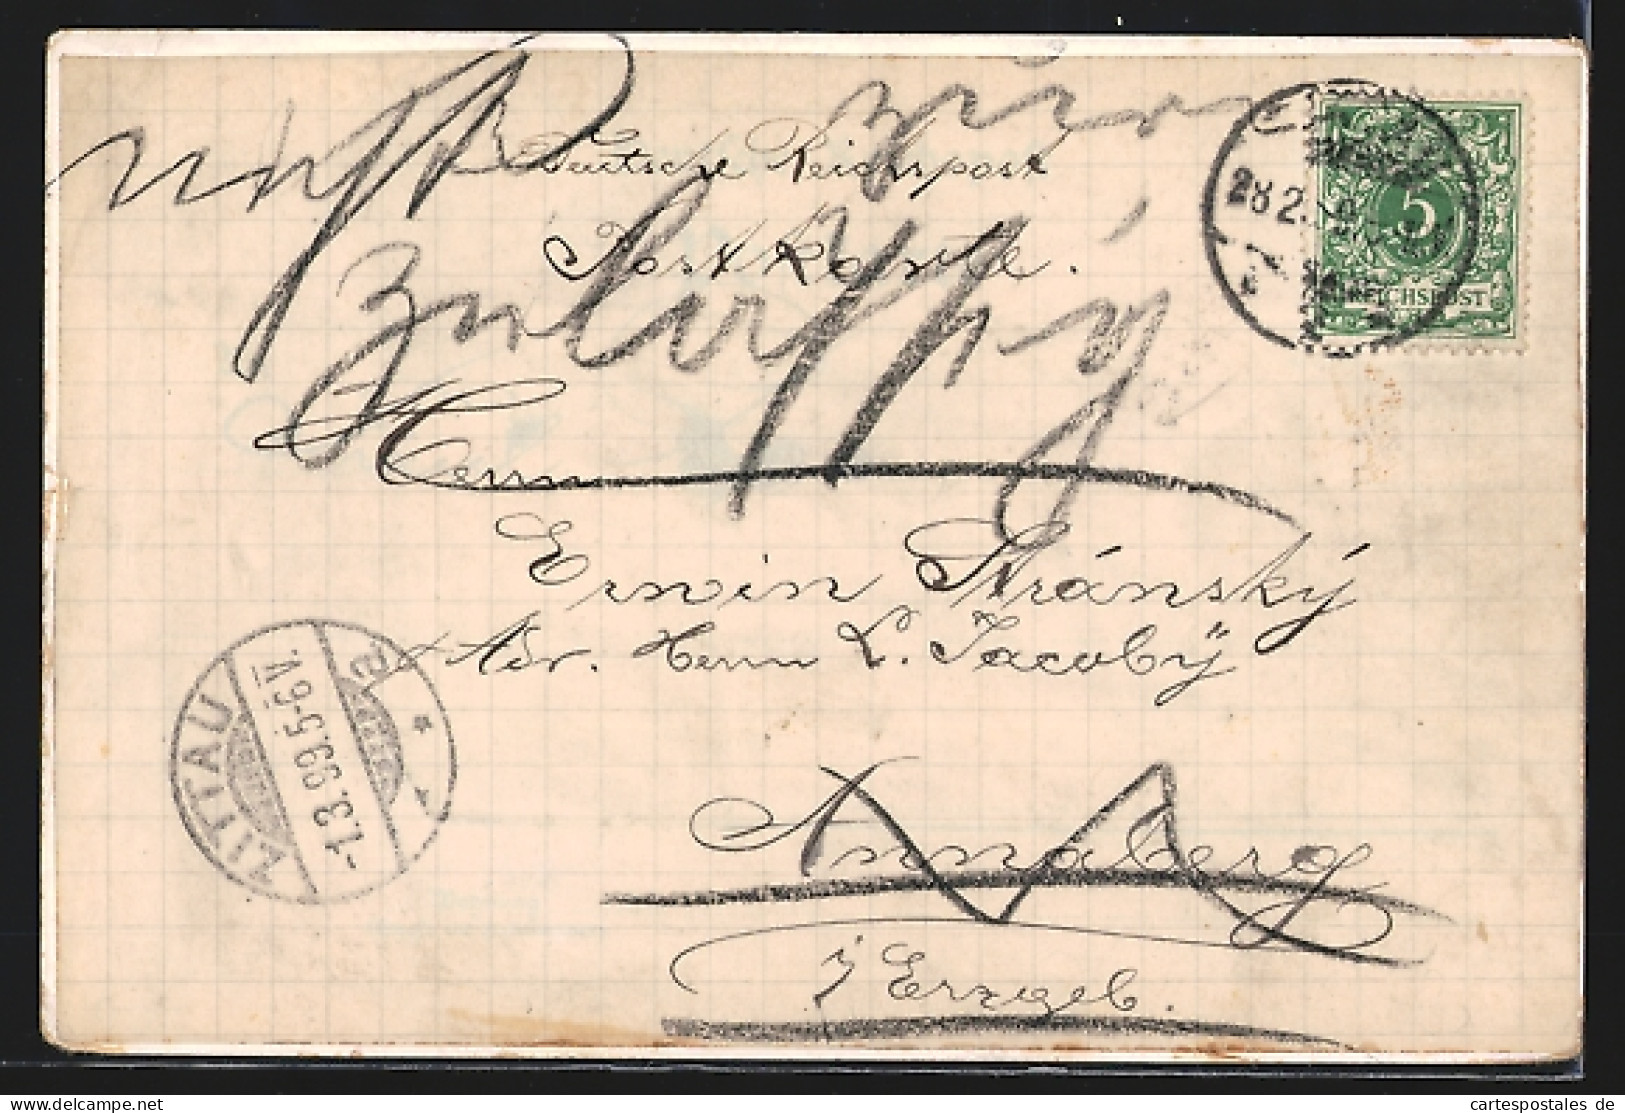 nicht zulässig
zurück
Deutsche Reichspost
Postkarte.
28 2.
5
REICHSPOST
Herrn
Erwin Stránský
Adr. Herrn L. Jacoby
Annaberg
i/Erzgeb.
ZITTAU
-1.3.99.5-6V.
* a
cartespostales de